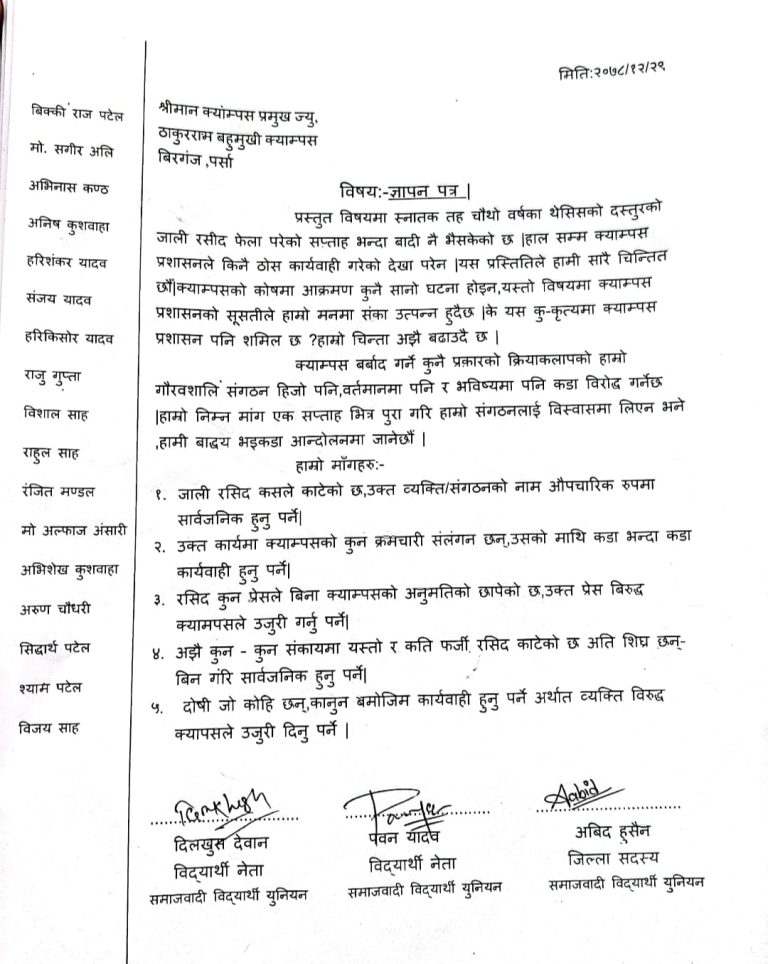 मिति:२०७८/१२/२९
बिक्की राज पटेल
मो. सगीर अलि
अभिनास कण्ठ
अनिष कुशवाहा
हरिशंकर यादव
संजय यादव
हरिकिसोर यादव
राजु गुप्ता
विशाल साह
राहुल साह
रंजित मण्डल
मो अल्फाज अंसारी
अभिशेख कुशवाहा
अरुण चौधरी
सिद्धार्थ पटेल
श्याम पटेल
विजय साह
श्रीमान क्याम्पस प्रमुख ज्यु,
ठाकुरराम बहुमुखी क्याम्पस
बिरगंज ,पर्सा
विषय:-ज्ञापन पत्र |
प्रस्तुत विषयमा स्नातक तह चौथो वर्षका थेसिसको दस्तुरको
जाली रसीद फेला परेको सप्ताह भन्दा बादी नै भैसकेको छ |हाल सम्म क्याम्पस
प्रशासनले किनै ठोस कार्यवाही गरेको देखा परेन |यस प्रस्तितिले हामी सारै चिन्तित
छौं|क्याम्पसको कोषमा आक्रमण कुनै सानो घटना होइन,यस्तो विषयमा क्याम्पस
प्रशासनको सूसतीले हाम्रो मनमा संका उत्पन्न हुदैछ |के यस कु-कृत्यमा क्याम्पस
प्रशासन पनि शमिल छ ?हाम्रो चिन्ता अझै बढाउदै छ |
क्याम्पस बर्बाद गर्ने कुनै प्रकारको क्रियाकलापको हाम्रो
गौरवशालि संगठन हिजो पनि,वर्तमानमा पनि र भविष्यमा पनि कडा विरोद्ध गर्नेछ
|हाम्रो निम्न मांग एक सप्ताह भित्र पुरा गरि हाम्रो संगठनलाई विस्वासमा लिएन भने
,हामी बाद्धय भइकडा आन्दोलनमा जानेछौं |
हाम्रो माँगहरु:-
१. जाली रसिद कसले काटेको छ,उक्त व्यक्ति/संगठनको नाम औपचारिक रुपमा
सार्वजनिक हुनु पर्ने|
२. उक्त कार्यमा क्याम्पसको कुन क्रमचारी संलंगन छन्,उसको माथि कडा भन्दा कडा
कार्यवाही हुनु पर्ने|
३. रसिद कुन प्रेसले बिना क्याम्पसको अनुमतिको छापेको छ,उक्त प्रेस बिरुद्ध
क्यामपसले उजुरी गर्नु पर्ने|
४. अझै कुन - कुन संकायमा यस्तो र कति फर्जी रसिद काटेको छ अति शिघ्र छन्-
बिन गरि सार्वजनिक हुनु पर्ने|
५. दोषी जो कोहि छन्,कानुन बमोजिम कार्यवाही हुनु पर्ने अर्थात व्यक्ति विरुद्ध
क्यापसले उजुरी दिनु पर्ने |
Aabid
दिलखुस देवान
विद्यार्थी नेता
समाजवादी विद्यार्थी युनियन
पवन यादव
विद्यार्थी नेता
समाजवादी विद्यार्थी युनियन
अबिद हुसैन
जिल्ला सदस्य
समाजवादी विद्यार्थी युनियन